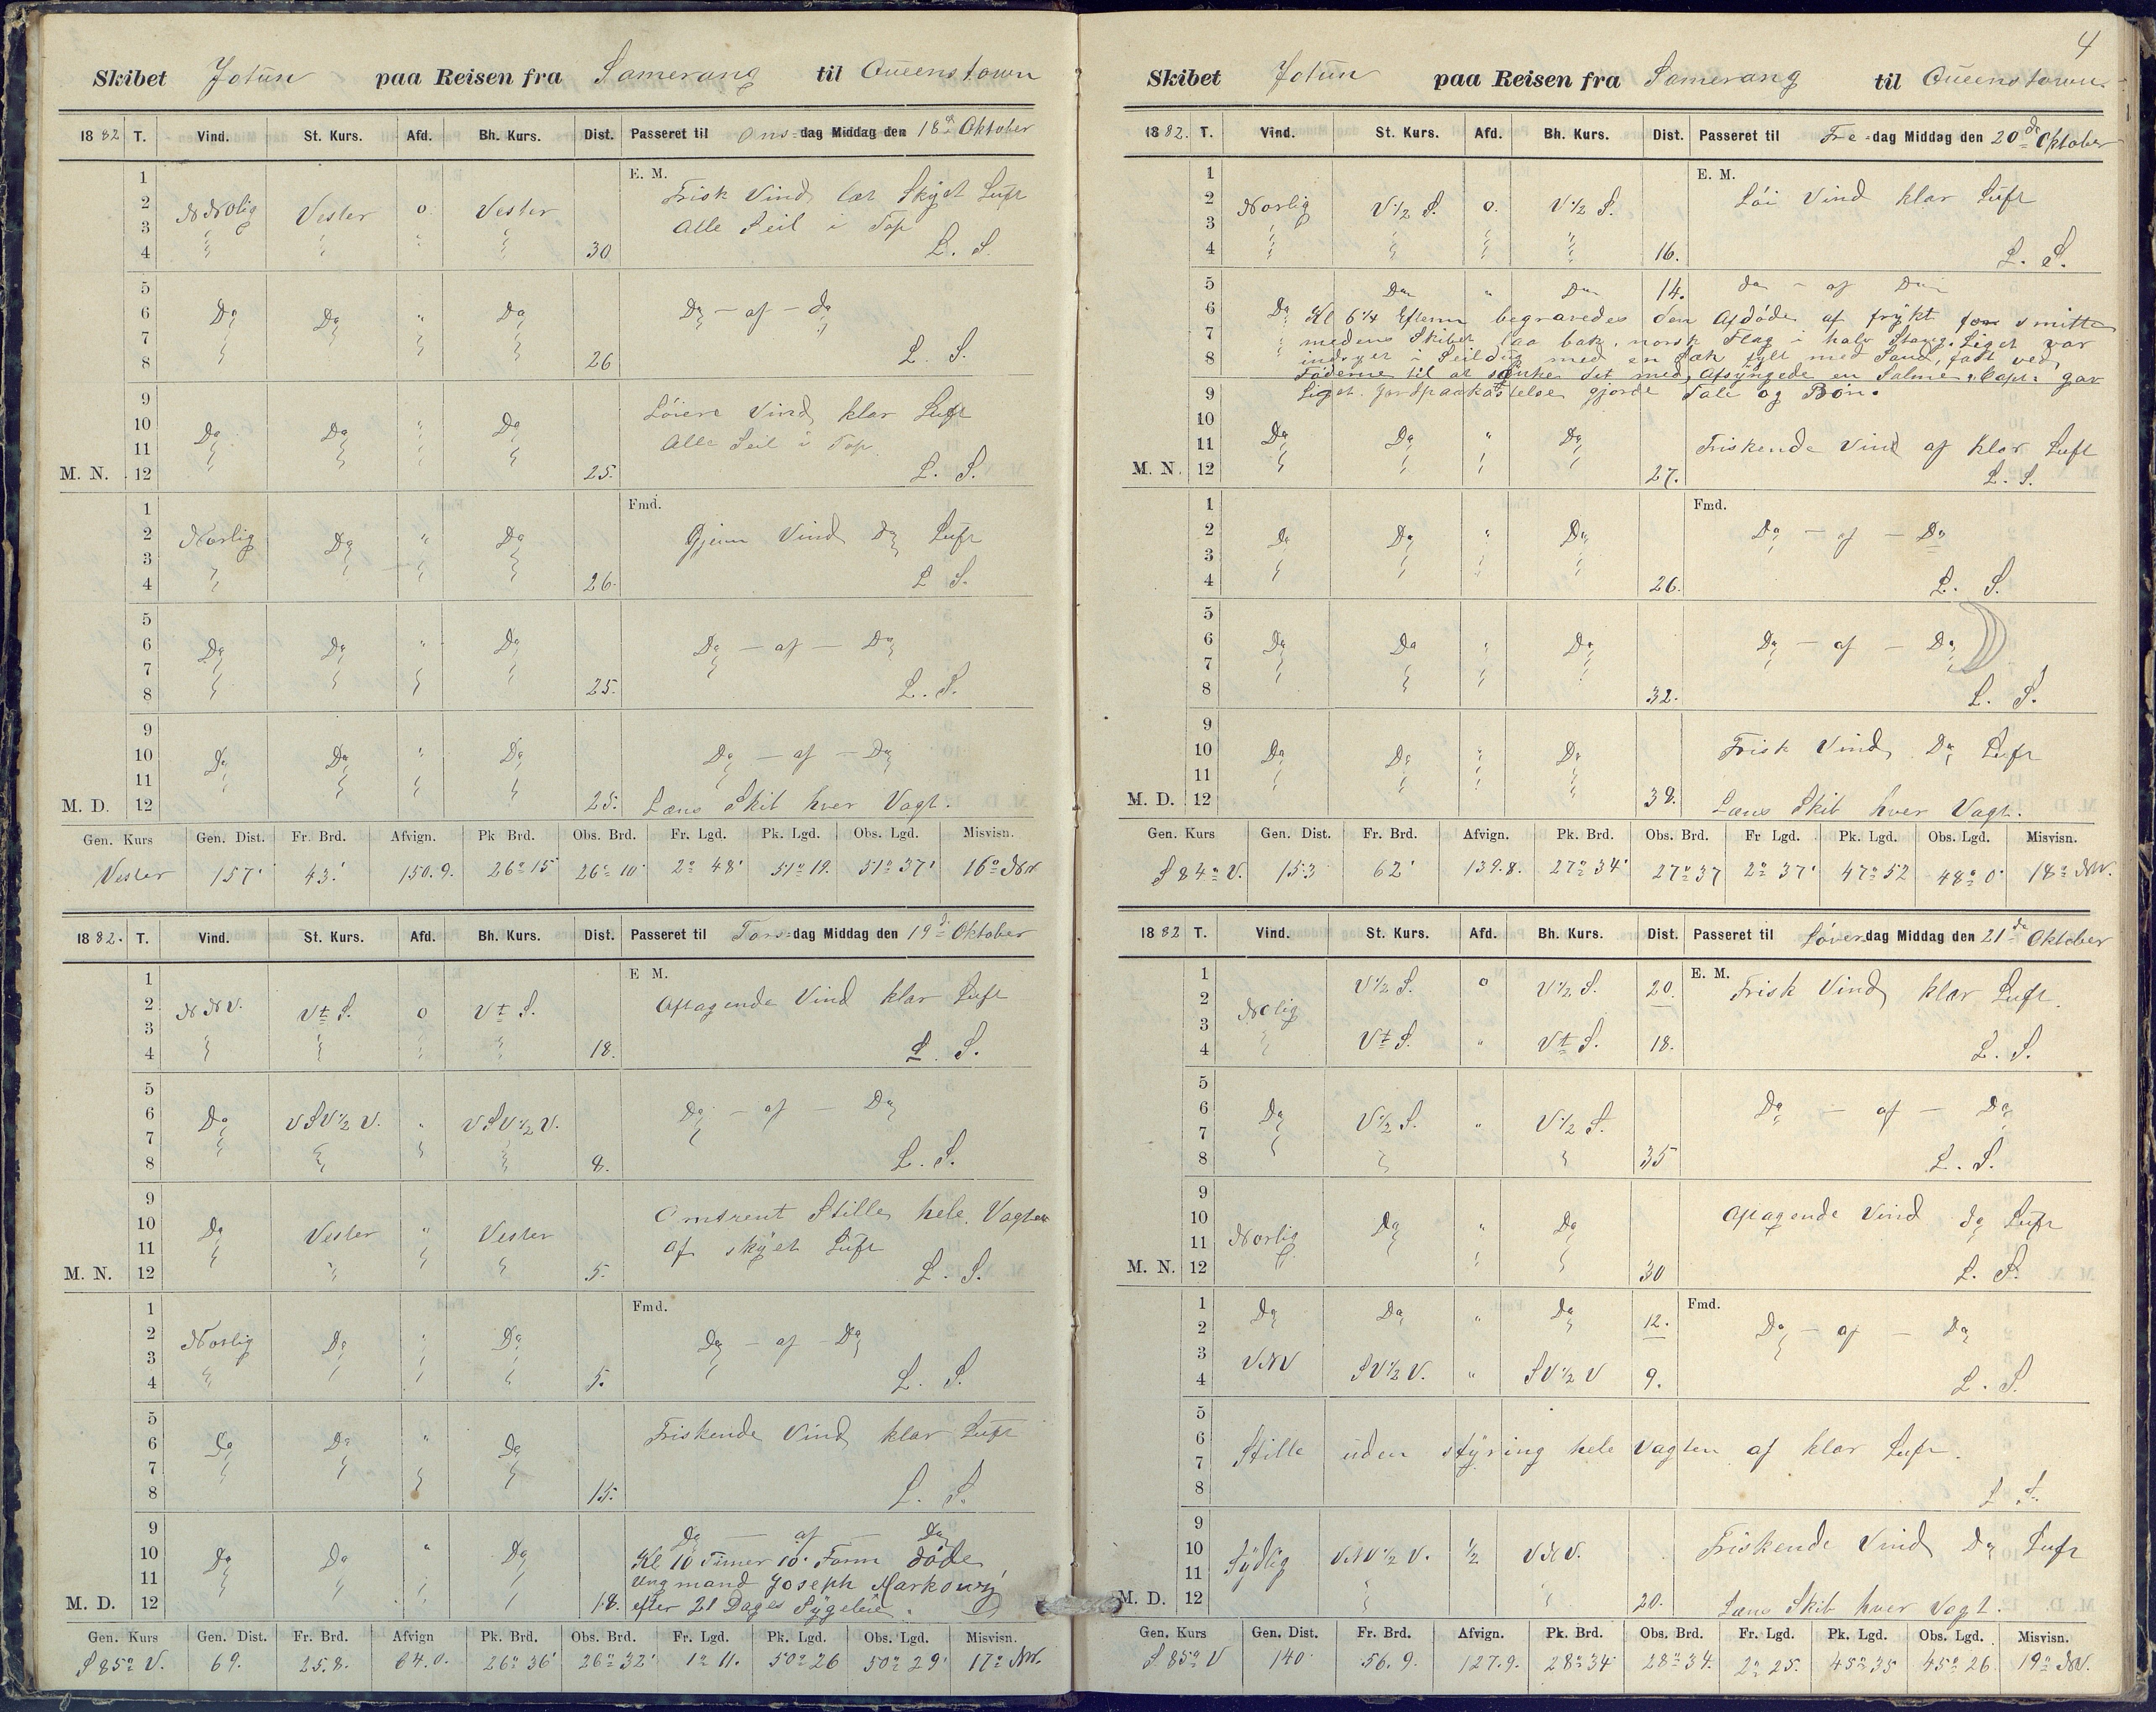 Skibet Jotun paa Reisen fra Samerang til Queenstown
1882 T. Vind. St. Kurs. Afd. Bh. Kurs. Dist. Passeret til Ons-dag Middag den 18de Oktober
E. M.
1
2 NNolig Vester o Vester Frisk Vind let Skyet Luft
3 Alle Seil i Top
4 30 L. S.
5
6 Do Do " Do Do - af - do
7
8 26 L. S.
9 Löiere Vind klar Luft
10 Do Do " Do Alle Seil i Top
11
M. N. 12 25. L. S.
Fmd.
1
2 Norlig Do " Do Gjenn Vind do Luft
3
4 26. L S.
5
6 Do Do " Do Do - af - Do
7
8 25. L. S.
9
10 Do Do " Do Do - af - Do
11
M. D. 12 25. Læns Skib hver Vagt.
Gen. Kurs Gen. Dist. Fr. Brd. Afvign. Pk Brd. Obs. Brd. Fr. Lgd. Pk. Lgd. Obs. Lgd. Misvisn.
Vester 157' 43.' 150.9. 26° 15' 26° 10' 2° 48' 51° 19. 51° 37' 16° NW
1882. T. Vind. St. Kurs. Afd. Bh. Kurs. Dist. Passeret til Tors-dag Middag den 19de Oktober
E M.
1 Aftagende Vind klar Luft
2 NNV. Vt S. o Vt S.
3
4 18. L. S.
5
6 Do VSV½ V. " VSV½ V. Do - af - Do
7
8 8. L. S.
9 Omtrent Stille hele Vagten
10 Do Vester " Vester af skyet Luft
11
M. N. 12 5. L. S.
Fmd.
1
2 Norlig Do " Do Do - af - Do
3
4 5. L. S.
5
6 Do Do " Do Friskende Vind klar Luft
7
8 15. L. S.
9 Do - af - Do
10 Do Do " Do Kl 10 Timer 10' Form döde
11 Ungmand Joseph Markowij
M. D. 12 18. efter 21 Dages Sygeleie.
Gen. Kurs Gen. Dist. Fr. Brd. Afvign Pk. Brd. Obs. Brd. Fr. Lgd. Pk. Lgd. Obs. Lgd. Misvisn.
S 85° V. 69. 25.8. 64.0. 26° 36' 26° 32' 1° 11. 50° 26 50° 29' 17° NW.
4
Skibet Jotun paa Reisen fra Samerang til Queenstown
1882. T. Vind. St. Kurs. Afd. Bh. Kurs. Dist. Passeret til Fre-dag Middag den 20de Oktober
E. M.
1
2 Norlig V½ S. o. V½ S. Löi Vind klar Luft
3
4 16. L. S.
5 Do " Do 14. do - af Do
6 Do Kl 6¼ Efterm begravedes den Afdöde af frykt for smitte
7 medens Skibet laa bak, norsk Flag i halv Stang. Liget var
8 indsyet i Seildug med en Sæk fylt med Sand, fast ved
Föderne til at sænke det med, Afsyngede en Salme, Capt. gav
9 Liget Jordspaakastelse gjorde Tale og Bön.
10
11 Do Do " Do Friskende Vind af klar Luft
M. N. 12 27. L. S.
Fmd.
1
2 Do Do " Do Do - af - Do
3
4 26. L. S.
5
6 Do Do " Do Do - af - Do
7
8 32. L. S.
9
10 Do Do " Do Frisk Vind Do Luft
11
M. D. 12 38. Læns Skib hver Vagt.
Gen. Kurs Gen. Dist. Fr. Brd. Afvign. Pk. Brd. Obs. Brd. Fr Lgd. Pk. Lgd. Obs. Lgd. Misvisn.
S 84° V. 153 62' 139.8. 27° 34' 27° 37 2° 37' 47° 52 48° 0' 18° NW.
1882 T. Vind. St. Kurs. Afd. Bh. Kurs. Dist. Passeret til Löver-dag Middag den 21de Oktober
E. M.
1 V½ S. o V½ S. 20. Frisk Vind klar Luft.
2 Nolig
3
4 Vt S. " Vt S. 18. L. S.
5
6 Do V½ S. " V½ S. Do - af - Do
7
8 35 L. S.
9
10 Norlig Do " Do Aftagende Vind do Luft
11
M. N. 12 30 L. S.
Fmd.
1 Do Do " Do 12.
2 Do - af - Do
3 VNV SV½ V. " SV½ V 9.
4 L. S.
5
6 Stille uden styring hele Vagten af klar Luft.
7
8 L S.
9
10 Sydlig VNV½ V. ½ VNV. Friskende Vind Do Luft
11
M. D. 12 20. Læns Skib hver Vagt.
Gen. Kurs Gen. Dist. Fr. Brd. Afvign. Pk. Brd. Obs. Brd. Fr. Lgd. Pk. Lgd. Obs. Lgd. Misvisn.
S 85° V 140 56.9. 127.9. 28° 34' 28° 34. 2° 25. 45° 35 45° 26 19° NV.